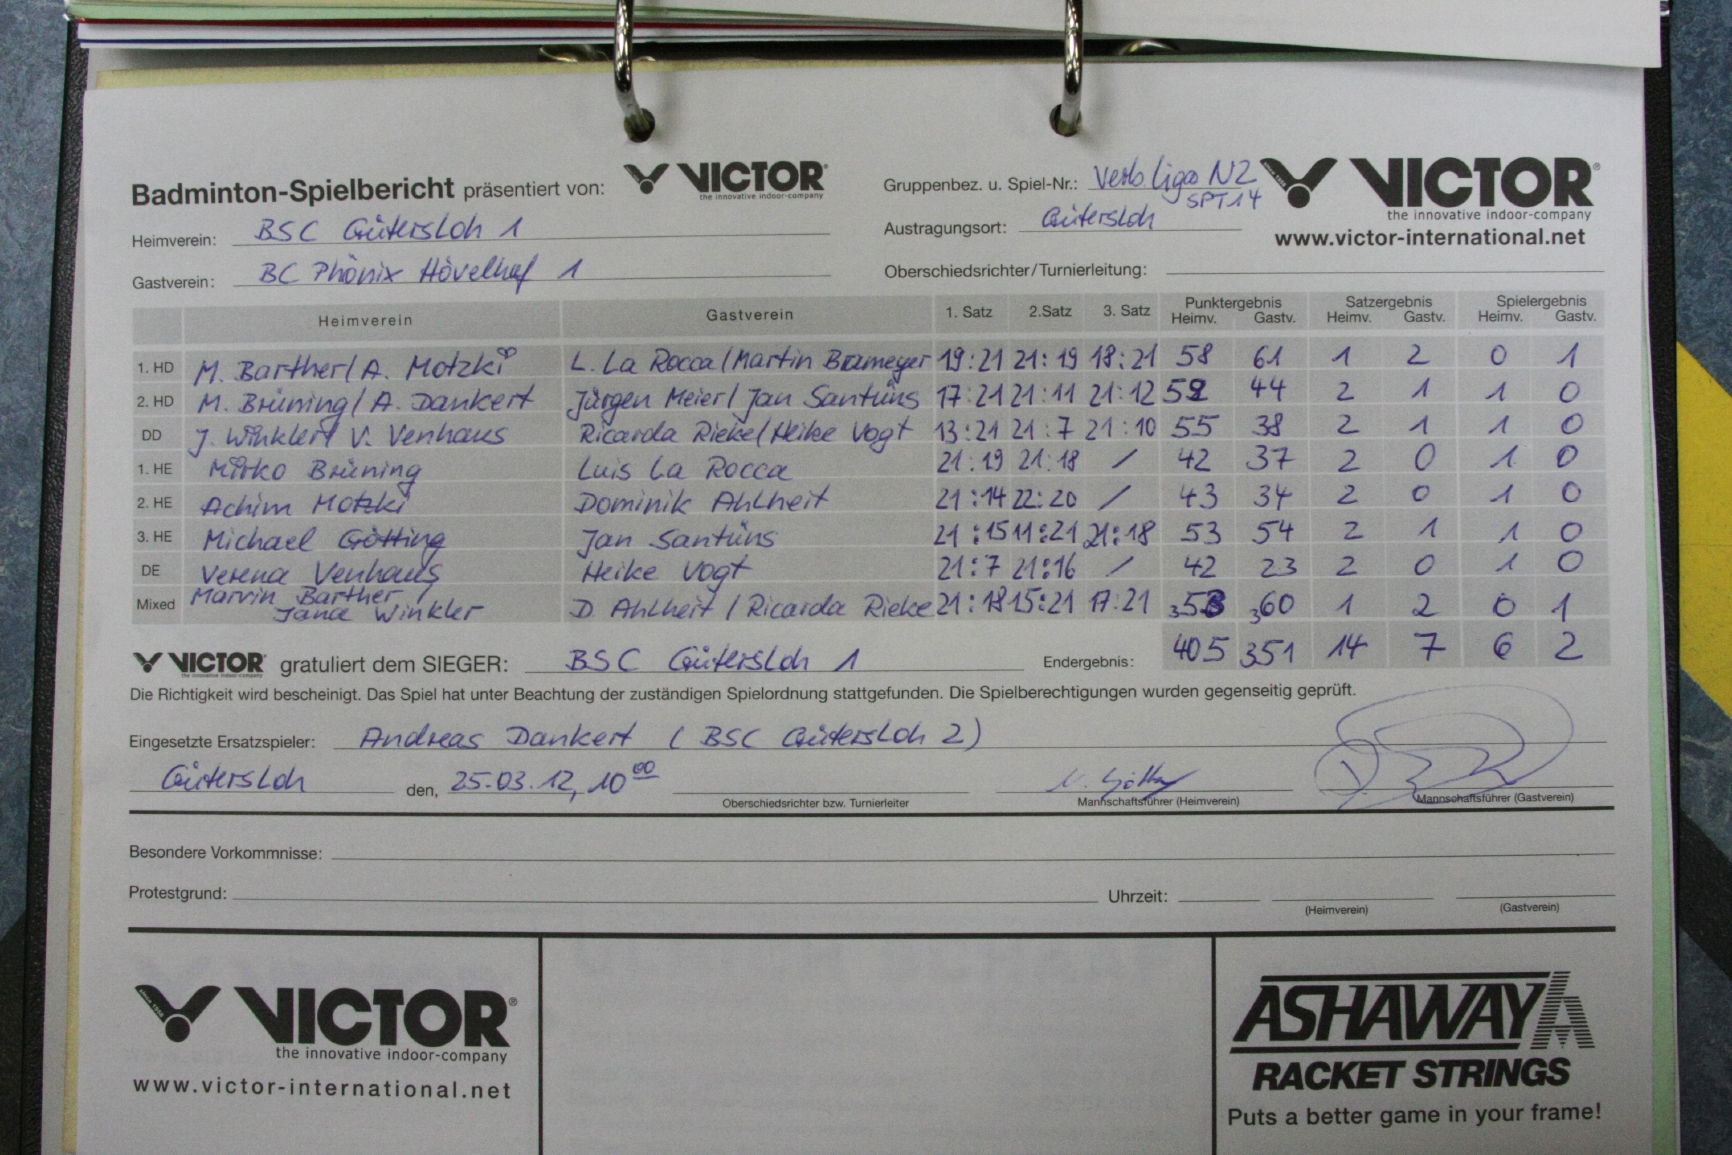 Badminton-Spielbericht präsentiert von: VICTOR®
the innovative indoor-company
Gruppenbez. u. Spiel-Nr.: Verb. Liga N2
SPT 14
VICTOR®
the innovative indoor-company
www.victor-international.net
Heimverein: BSC Gütersloh 1
Austragungsort: Gütersloh
Gastverein: BC Phönix Hövelhof 1
Oberschiedsrichter/Turnierleitung:
Heimverein Gastverein 1. Satz 2.Satz 3. Satz Punktergebnis Satzergebnis Spielergebnis
Heimv. Gastv. Heimv. Gastv. Heimv. Gastv.
1. HD M. Barther/A. Motzki L. La Rocca/Martin Brameyer 19:21 21:19 18:21 58 61 1 2 0 1
2. HD M. Brüning/A. Dankert Jürgen Meier/Jan Santüns 17:21 21:11 21:12 59 44 2 1 1 0
DD J. Winkler/V. Venhaus Ricarda Rieke/Heike Vogt 13:21 21:7 21:10 55 38 2 1 1 0
1. HE Mirko Brüning Luis La Rocca 21:19 21:18 / 42 37 2 0 1 0
2. HE Achim Motzki Dominik Ahlheit 21:14 22:20 / 43 34 2 0 1 0
3. HE Michael Götting Jan Santüns 21:15 11:21 21:18 53 54 2 1 1 0
DE Verena Venhaus Heike Vogt 21:7 21:16 / 42 23 2 0 1 0
Mixed Marvin Barther / Jana Winkler D. Ahlheit / Ricarda Rieke 21:18 15:21 17:21 3 53 3 60 1 2 0 1
VICTOR® gratuliert dem SIEGER: BSC Gütersloh 1 Endergebnis: 405 351 14 7 6 2
the innovative indoor-company
Die Richtigkeit wird bescheinigt. Das Spiel hat unter Beachtung der zuständigen Spielordnung stattgefunden. Die Spielberechtigungen wurden gegenseitig geprüft.
Eingesetzte Ersatzspieler: Andreas Dankert (BSC Gütersloh 2)
Gütersloh den, 25.03.12, 10 00
Oberschiedsrichter bzw. Turnierleiter Mannschaftsführer (Heimverein) Mannschaftsführer (Gastverein)
Besondere Vorkommnisse:
Protestgrund: Uhrzeit:
(Heimverein) (Gastverein)
VICTOR®
the innovative indoor-company
www.victor-international.net
ASHAWAY
RACKET STRINGS
Puts a better game in your frame!